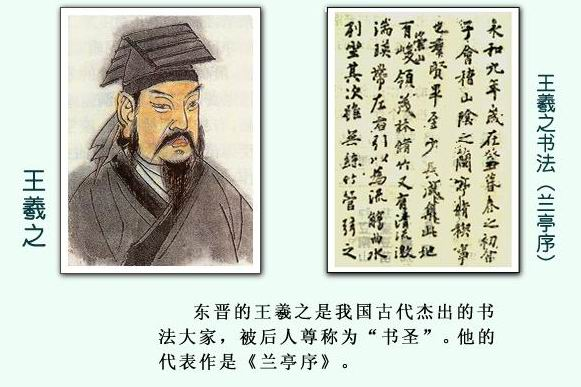 王羲之
永和九年歲在癸丑暮春之初會
于會稽山陰之蘭亭脩稧事
也羣賢畢至少長咸集此地
有崇山峻領茂林脩竹又有清流激
湍暎帶左右引以為流觴曲水
列坐其次雖無絲竹管弦之
王羲之书法（兰亭序）
东晋的王羲之是我国古代杰出的书
法大家，被后人尊称为“书圣”。他的
代表作是《兰亭序》。